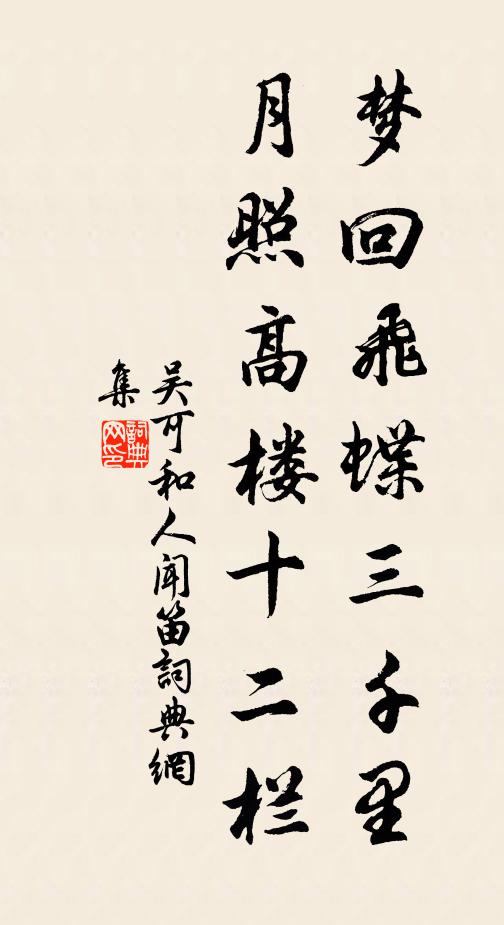 梦回飛蝶三千里
月照高楼十二栏
吴可和人闻笛詞典網
集
詞典网印